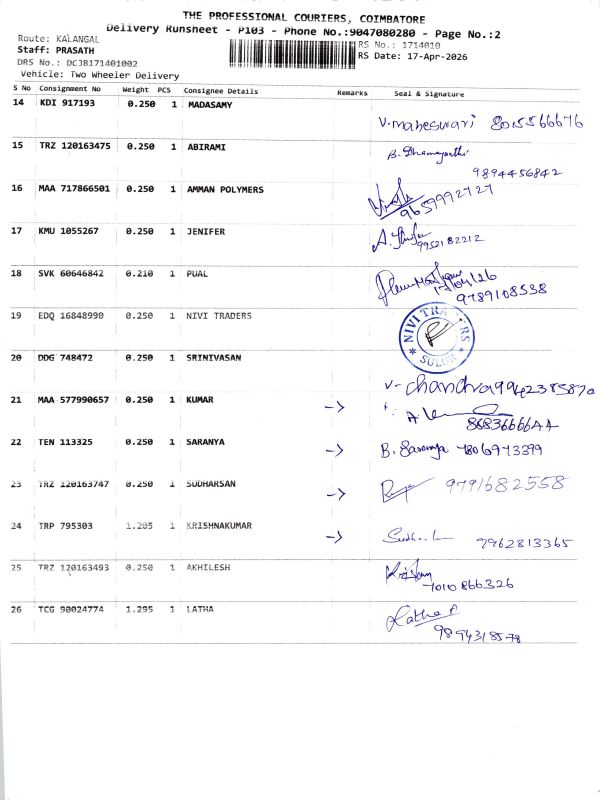 THE PROFESSIONAL COURIERS, COIMBATORE
Delivery Runsheet - P103 - Phone No.:9047080280 - Page No.:2
Route: KALANGAL
RS No.: 1714010
Staff: PRASATH
RS Date: 17-Apr-2026
DRS No.: DCJB171401002
Vehicle: Two Wheeler Delivery
S No Consignment No Weight PCS Consignee Details Remarks Seal & Signature
14 KDI 917193 0.250 1 MADASAMY
V. maheswari 8015566676
15 TRZ 120163475 0.250 1 ABIRAMI
B. Dhamayanthi
9894456842
16 MAA 717866501 0.250 1 AMMAN POLYMERS
9659992727
17 KMU 1055267 0.250 1 JENIFER
A. Jenifer
9952182212
18 SVK 60646842 0.210 1 PUAL
17/04/26
9789108538
19 EDQ 16848990 0.250 1 NIVI TRADERS
NIVI TRADERS
SULUR
20 DDG 748472 0.250 1 SRINIVASAN
V- chandra 9942385870
21 MAA 577990657 0.250 1 KUMAR ->
86836666AA
22 TEN 113325 0.250 1 SARANYA -> B. Saranya 7806973399
23 TRZ 120163747 0.250 1 SUDHARSAN -> 9791682558
24 TRP 795303 1.205 1 KRISHNAKUMAR ->
9962813365
25 TRZ 120163493 0.250 1 AKHILESH
7010866326
26 TCG 90024774 1.295 1 LATHA
Latha P
9894318578